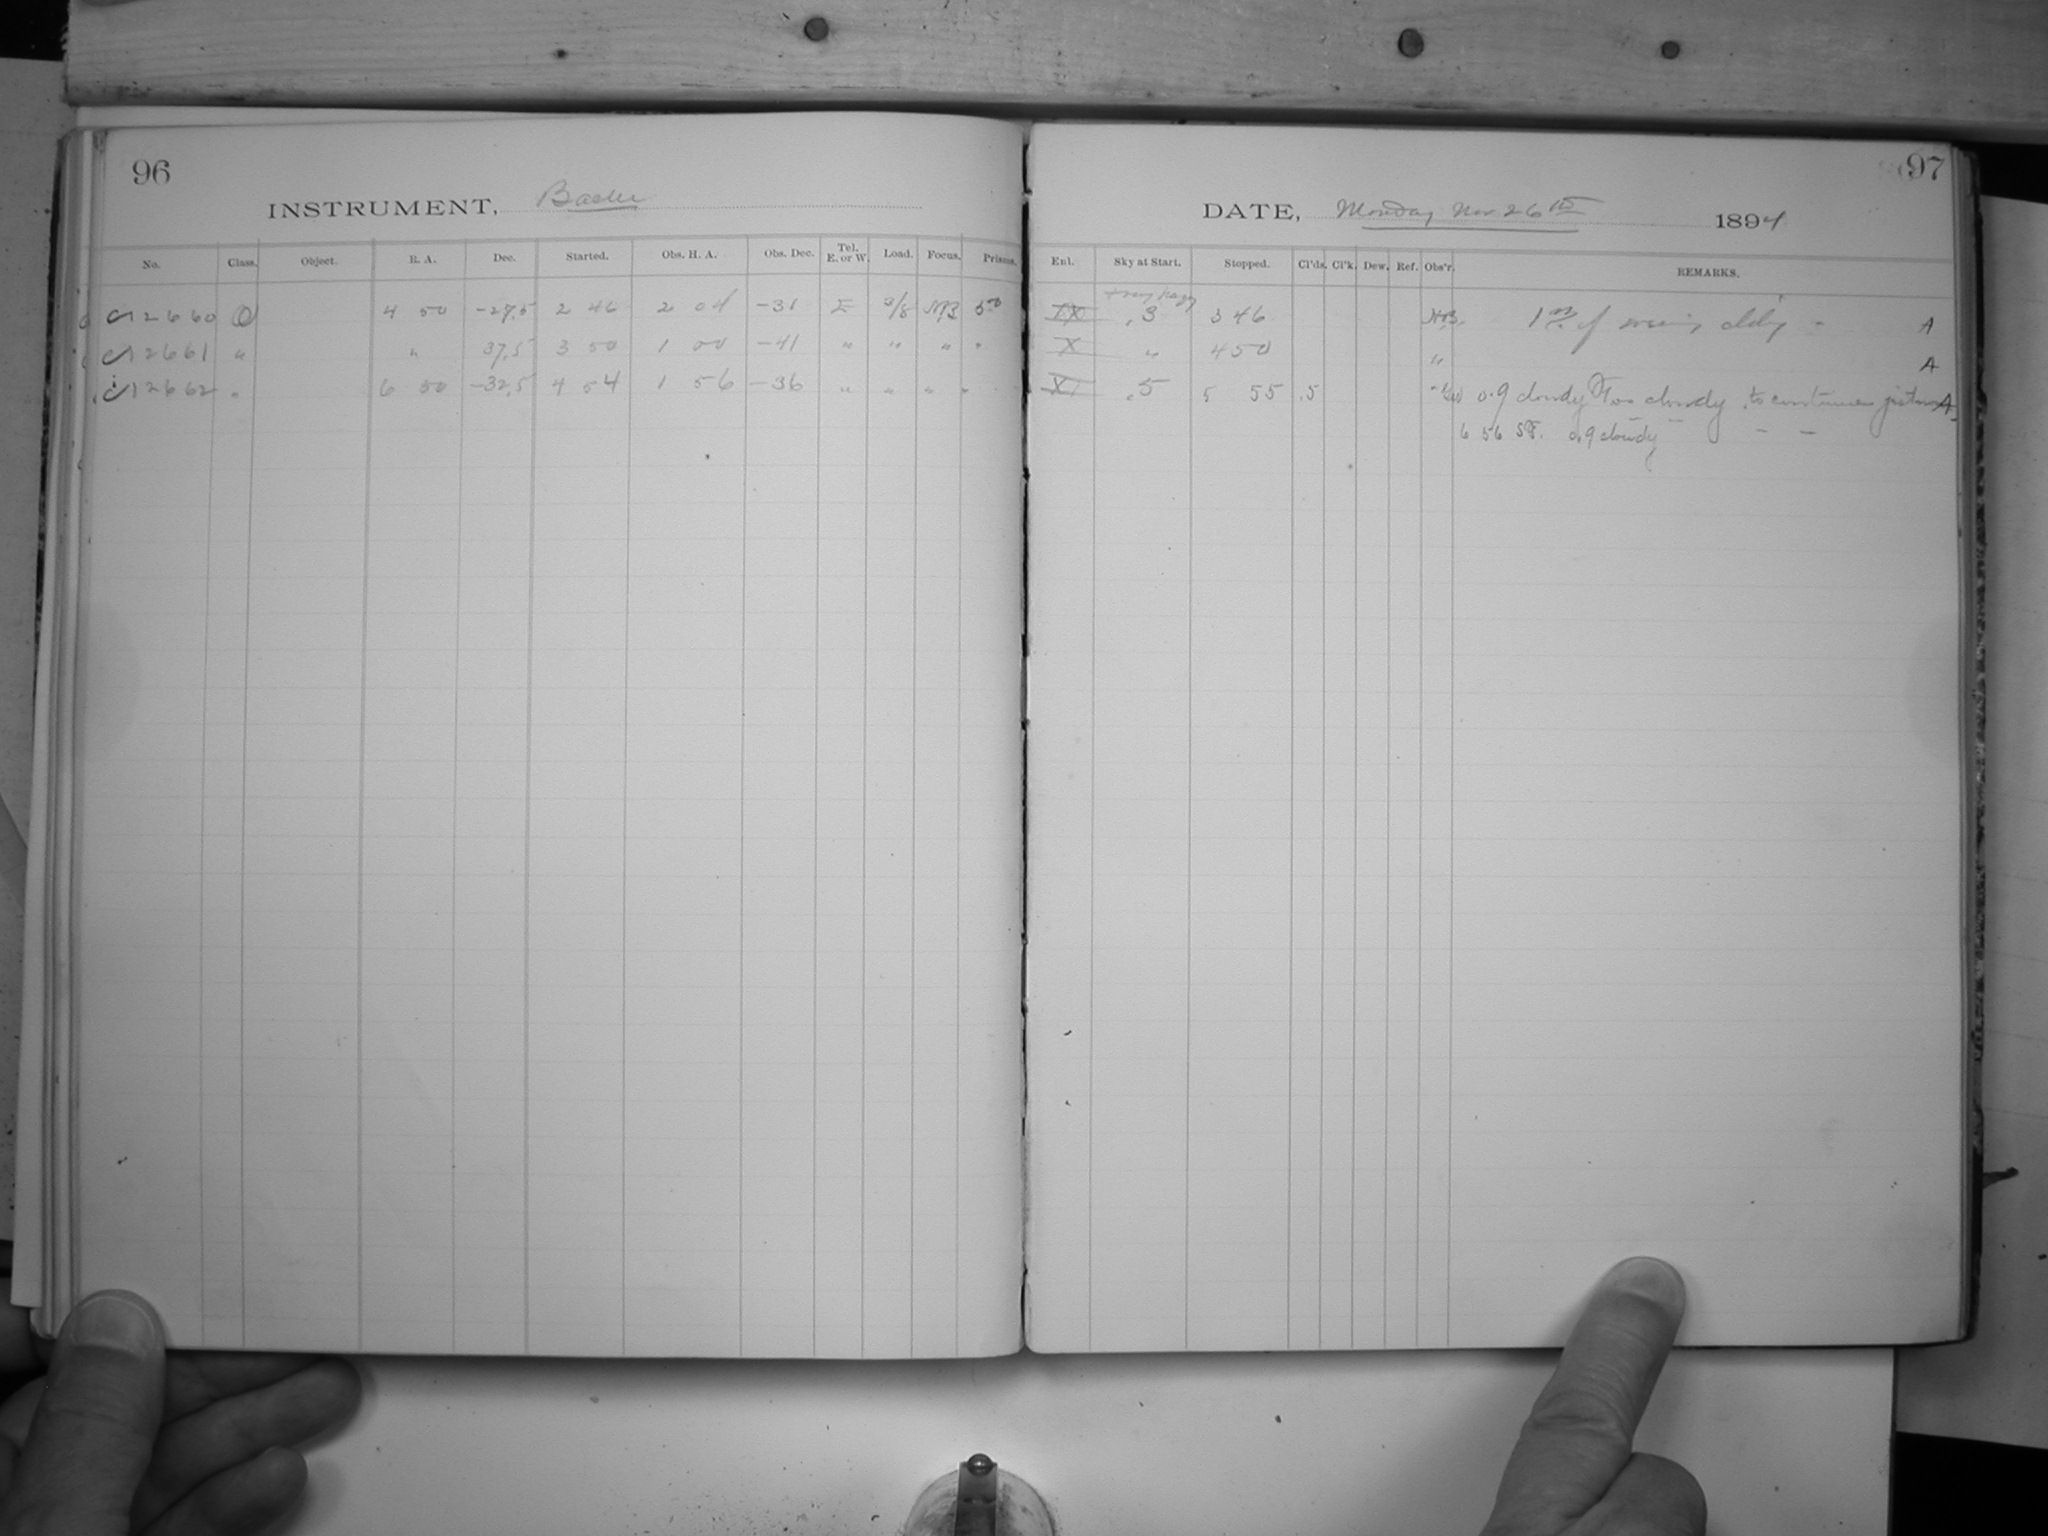 96
INSTRUMENT, Bache
No. Class. Object. R. A. Dec. Started. Obs. H. A. Obs. Dec. Tel. E. or W. Load. Focus. Prisms.
12660 O 4 50 -27.5 2 46 2 04 -31 E /8 5
12661 " " 37.5 3 50 1 00 -41 " " " "
12662 " 6 50 -32.5 4 54 1 56 -36 " " " "
97
DATE, Monday Nov 26th 1894
Enl. Sky at Start. Stopped. Cl'ds. Cl'k. Dew. Ref. Obs'r. REMARKS.
IX .3 3 46 1st of evening cldy - A
X " 4 50 " A
XI .5 5 55 .5 0.9 cloudy Too cloudy to continue A
6 56 ST. 0.9 cloudy - -